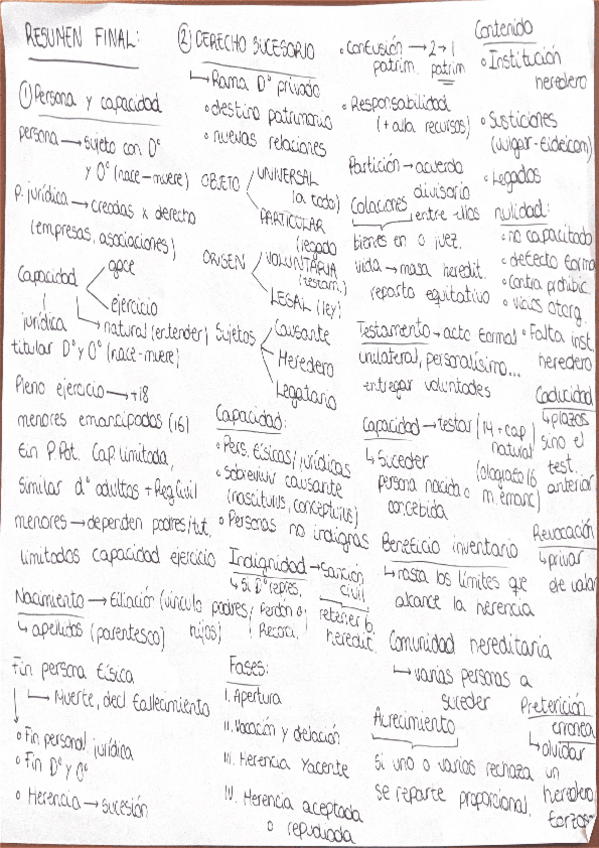 RESUMEN FINAL:
① Persona y capacidad
persona → sujeto con Dº
y Oº (nace-muere)
p. jurídica → creadas x derecho
(empresas, asociaciones)
Capacidad
goce
ejercicio
natural (entender)
jurídica
titular Dº y Oº (nace-muere)
Pleno ejercicio → +18
menores emancipados (16)
Fin P.Pot. Cap. limitada,
similar dº adultos + Reg Civil
menores → dependen padres/tut.
limitados capacidad ejercicio
Nacimiento → filiación (vínculo padres/
hijos)
↳ apellidos (parentesco)
Fin persona física
↳ Muerte, decl fallecimiento
• Fin personal jurídica
• Fin Dº y Oº
• Herencia → sucesión
② DERECHO SUCESORIO
↳ Rama Dº privado
• destino patrimonio
• nuevas relaciones
OBJETO
UNIVERSAL
(a todo)
PARTICULAR
(legado
ORIGEN
VOLUNTARIA
(testam.)
LEGAL (ley)
Sujetos
Causante
Heredero
Legatario
Capacidad:
• Pers. físicas/jurídicas
• sobrevivir causante
(nasciturus, concepturus)
• Personas no indignas
Indignidad → sanción
civil
↳ Sí Dº repres.
Perdón o
Recon.
retener b.
heredit.
Fases:
I. Apertura
II. Vocación y delación
III. Herencia Yacente
IV. Herencia aceptada
o repudiada
• Confusión → 2→1
patrim. patrim
• Responsabilidad
(+ alla recursos)
Partición → acuerdo
divisorio
entre ellos
o juez.
Colaciones
bienes en
vida → masa heredit.
reparto equitativo
Testamento → acto formal
unilateral, personalísimo...
entregar voluntades
Capacidad → testar (14 + cap
natural
(ológrafo 16
m. emanc)
↳ Suceder
persona nacida o
concebida
Beneficio inventario
↳ hasta los límites que
alcance la herencia
Comunidad hereditaria
↳ varias personas a
suceder
Acrecimiento
si uno o varios rechaza
se reparte proporcional.
Contenido
• Institución
heredero
• Susticiones
(vulgar-fideicom)
• Legados
nulidad:
• no capacitado
• defecto forma
• Contra prohibic
• vicios otorg.
• Falta inst.
heredero
Caducidad
↳ plazos
sino el
test.
anterior
Revocación
↳ privar
de valor
Preterición
erronea
↳ olvidar
un
heredero
forzoso